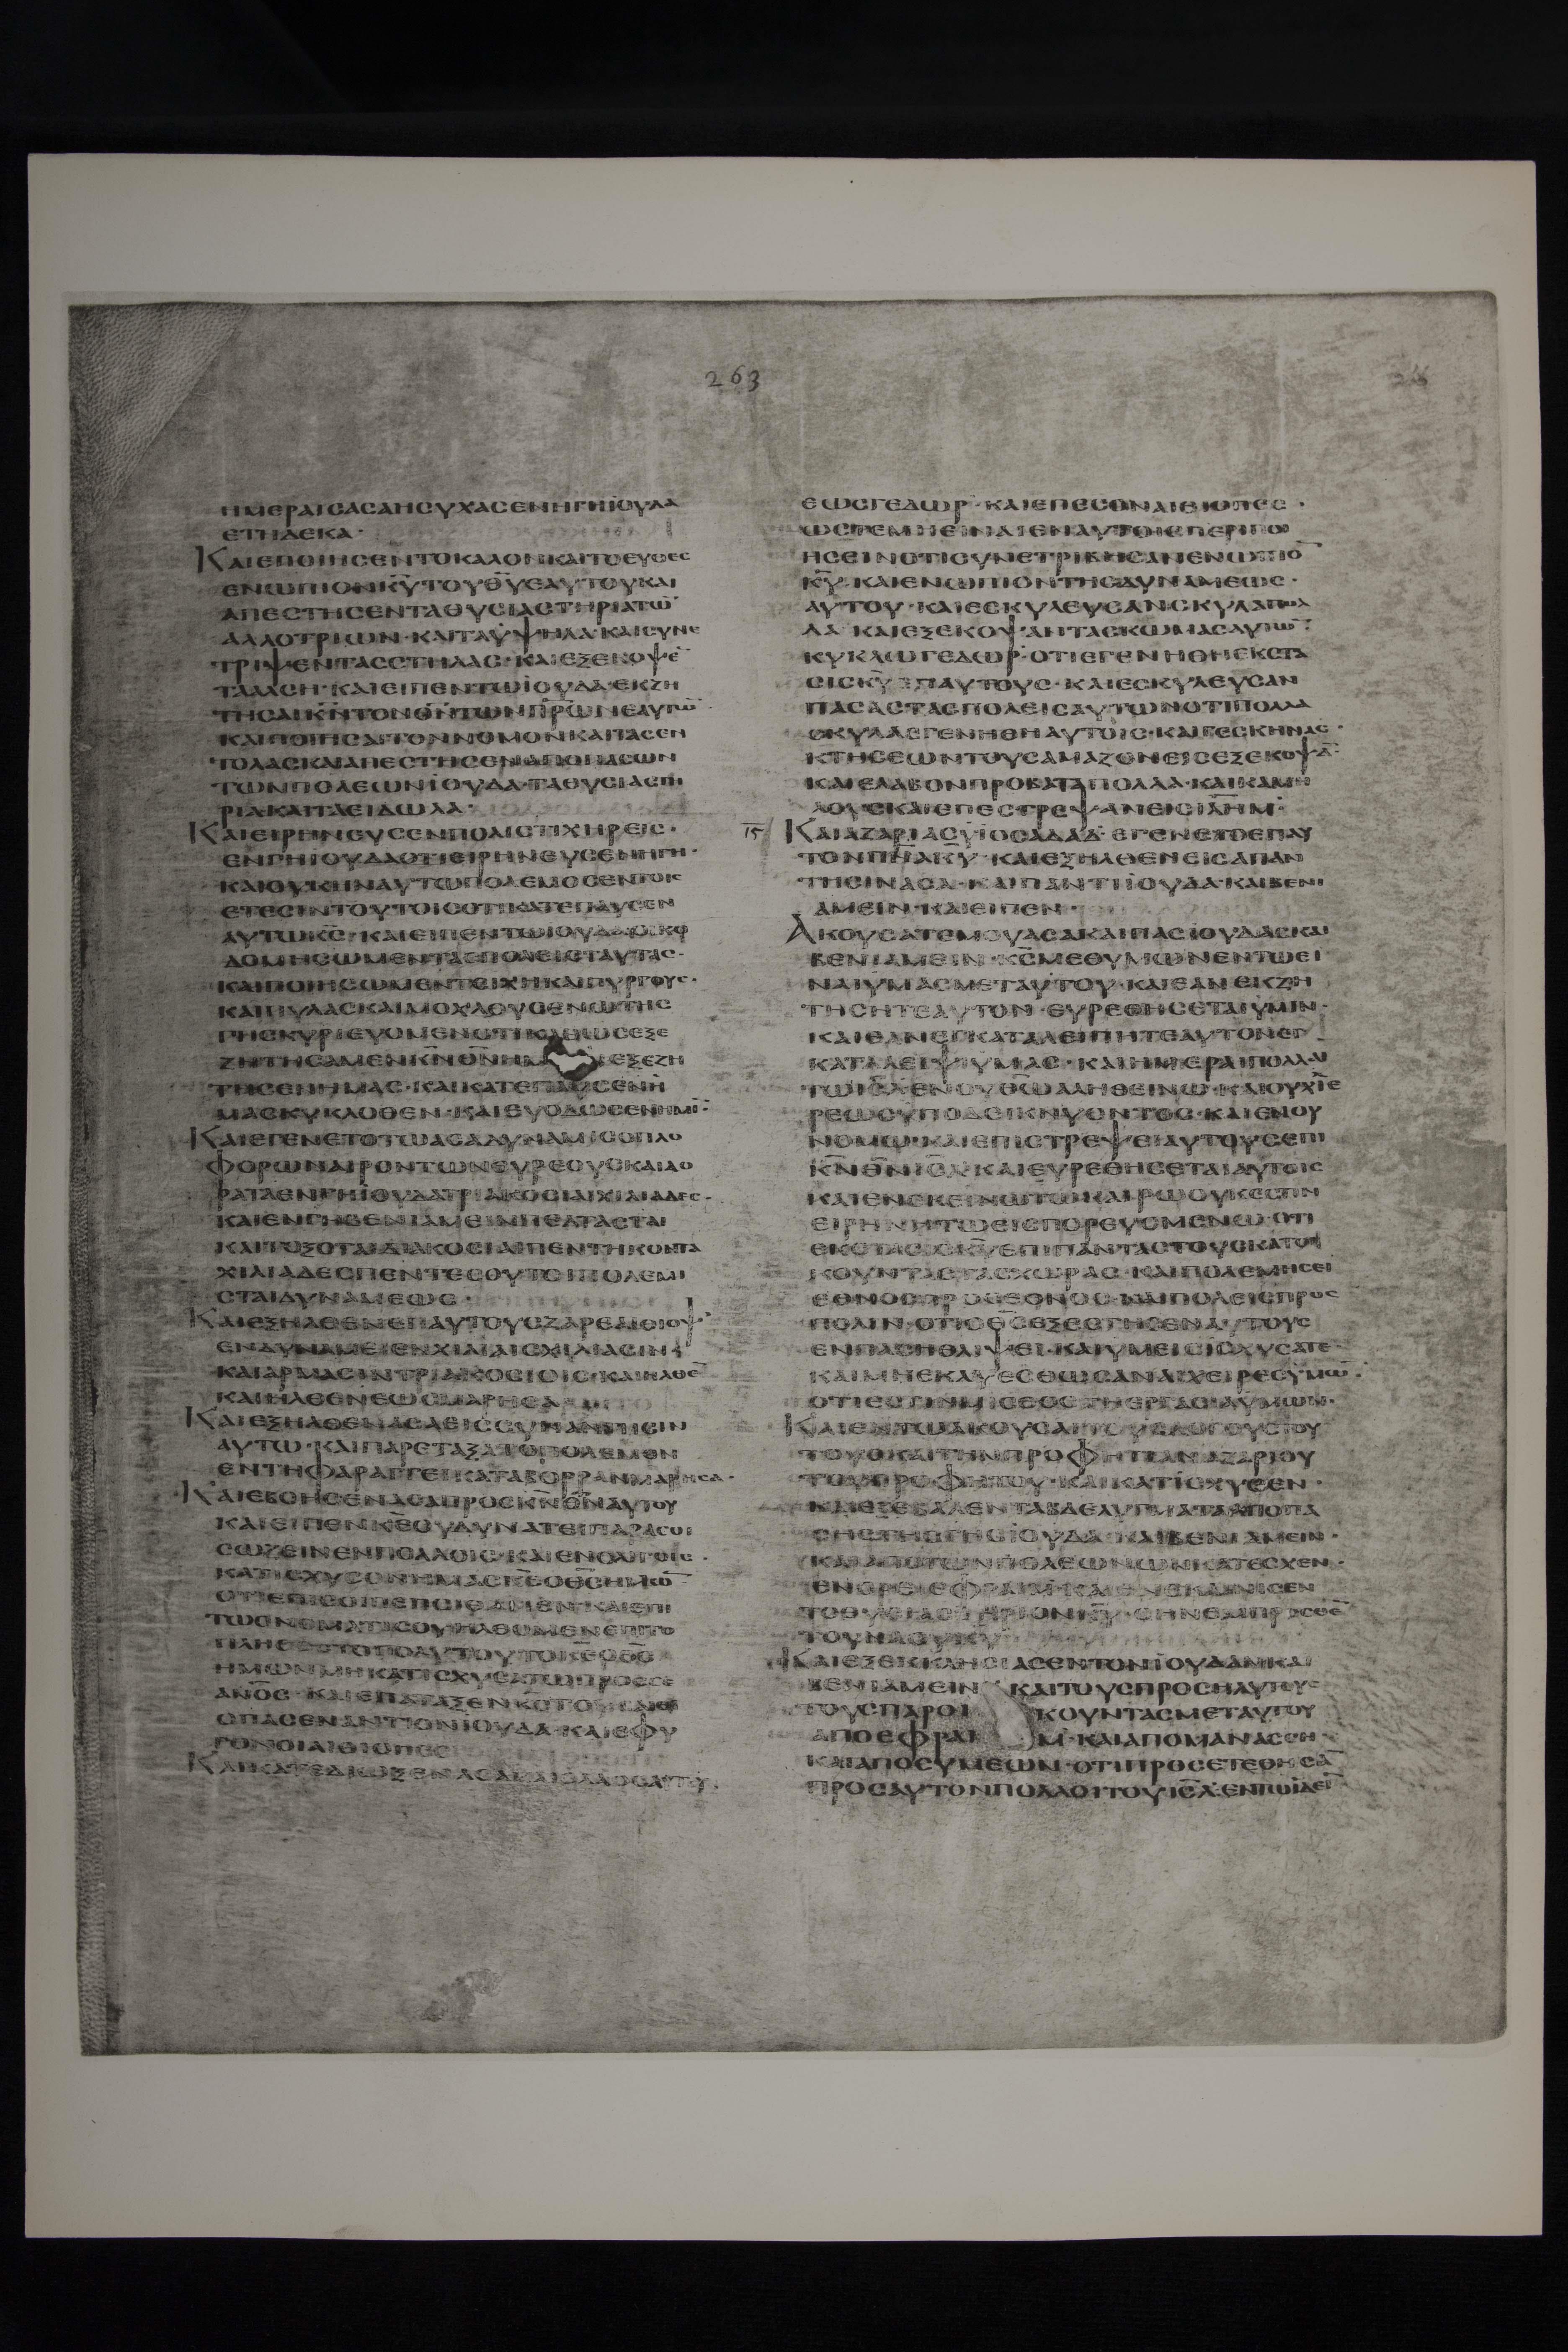 263
ΗΜΕΡΑΙΣΑΣΑΗΣΥΧΑΣΕΝΗΓΗΪΟΥΔΑ
ΕΤΗΔΕΚΑ·
ΚΑΙΕΠΟΙΗΣΕΝΤΟΚΑΛΟΝΚΑΙΤΟΕΥΘΕΣ
ΕΝΩΠΙΟΝΚ̅Υ̅ΤΟΥΘ̅Υ̅ΕΑΥΤΟΥΚΑΙ
ΑΠΕΣΤΗΣΕΝΤΑΘΥΣΙΑΣΤΗΡΙΑΤΩ̅
ΑΛΛΟΤΡΙΩΝ·ΚΑΙΤΑΫΨΗΛΑ·ΚΑΙΣΥΝΕ
ΤΡΙΨΕΝΤΑΣΣΤΗΛΑΣ·ΚΑΙΕΞΕΚΟΨΕ̅
ΤΑΑΛΣΗ·ΚΑΙΕΙΠΕΝΤΩΪΟΥΔΑ·ΕΚΖΗ
ΤΗΣΑΙΚ̅Ν̅ΤΟΝΘ̅Ν̅ΤΩΝΠ̅Ρ̅Ω̅Ν̅ΕΑΥΤΩ̅
ΚΑΙΠΟΙΗΣΑΙΤΟΝΝΟΜΟΝΚΑΙΤΑΣΕΝ
ΤΟΛΑΣΚΑΙΑΠΕΣΤΗΣΕΝΑΠΟΠΑΣΩΝ
ΤΩΝΠΟΛΕΩΝΪΟΥΔΑ·ΤΑΘΥΣΙΑΣΤΗ
ΡΙΑΚΑΙΤΑΕΙΔΩΛΑ·
ΚΑΙΕΙΡΗΝΕΥΣΕΝΠΟΛΙΣΤΙΧΗΡΕΙΣ·
ΕΝΓΗΪΟΥΔΑΟΤΙΕΙΡΗΝΕΥΣΕΝΗΓΗ·
ΚΑΙΟΥΚΗΝΑΥΤΩΠΟΛΕΜΟΣΕΝΤΟΙΣ
ΕΤΕΣΙΝΤΟΥΤΟΙΣΟΤΙΚΑΤΕΠΑΥΣΕΝ
ΑΥΤΩΚ̅Σ̅·ΚΑΙΕΙΠΕΝΤΩΪΟΥΔΑΟΙΚΟ
ΔΟΜΗΣΩΜΕΝΤΑΣΠΟΛΕΙΣΤΑΥΤΑΣ·
ΚΑΙΠΟΙΗΣΩΜΕΝΤΕΙΧΗΚΑΙΠΥΡΓΟΥΣ·
ΚΑΙΠΥΛΑΣΚΑΙΜΟΧΛΟΥΣΕΝΩΤΗΣ
ΓΗΣΚΥΡΙΕΥΟΜΕΝΟΤΙΚΑΘΩΣΕΞΕ
ΖΗΤΗΣΑΜΕΝΚ̅Ν̅Θ̅Ν̅ΗΜ ΕΞΕΖΗ
ΤΗΣΕΝΗΜΑΣ·ΚΑΙΚΑΤΕΠΑΥΣΕΝΗ
ΜΑΣΚΥΚΛΟΘΕΝ·ΚΑΙΕΥΟΔΩΣΕΝΗΜΙ̅·
ΚΑΙΕΓΕΝΕΤΟΤΩΑΣΑΔΥΝΑΜΙΣΟΠΛΟ
ΦΟΡΩΝΑΙΡΟΝΤΩΝΘΥΡΕΟΥΣΚΑΙΔΟ
ΡΑΤΑΕΝΓΗΪΟΥΔΑΤΡΙΑΚΟΣΙΑΙΧΙΛΙΑΔΕΣ·
ΚΑΙΕΝΓΗΒΕΝΙΑΜΕΙΝΠΕΛΤΑΣΤΑΙ
ΚΑΙΤΟΞΟΤΑΙΔΙΑΚΟΣΙΑΙΠΕΝΤΗΚΟΝΤΑ
ΧΙΛΙΑΔΕΣΠΕΝΤΕΣΟΥΤΟΙΠΟΛΕΜΙ
ΣΤΑΙΔΥΝΑΜΕΩΣ·
ΚΑΙΕΞΗΛΘΕΝΕΠΑΥΤΟΥΣΖΑΡΕΑΙΘΙΟΨ·
ΕΝΔΥΝΑΜΕΙΕΝΧΙΛΙΑΙΣΧΙΛΙΑΣΙΝ
ΚΑΙΑΡΜΑΣΙΝΤΡΙΑΚΟΣΙΟΙΣ·ΚΑΙΗΛΘΕ̅
ΚΑΙΗΛΘΕΝΕΩΣΜΑΡΗΣΑ
ΚΑΙΕΞΗΛΘΕΝΑΣΑΕΙΣΣΥΝΑΝΤΗΣΙΝ
ΑΥΤΩ·ΚΑΙΠΑΡΕΤΑΞΑΤΟΠΟΛΕΜΟΝ
ΕΝΤΗΦΑΡΑΓΓΕΙΚΑΤΑΒΟΡΡΑΝΜΑΡΗΣΑ·
ΚΑΙΕΒΟΗΣΕΝΑΣΑΠΡΟΣΚ̅Ν̅Θ̅Ν̅ΑΥΤΟΥ
ΚΑΙΕΙΠΕΝΚ̅Ε̅ΟΥΔΥΝΑΤΕΙΠΑΡΑΣΟΙ
ΣΩΖΕΙΝΕΝΠΟΛΛΟΙΣ·ΚΑΙΕΝΟΛΙΓΟΙΣ·
ΚΑΤΙΣΧΥΣΟΝΗΜΑΣΚ̅Ε̅ΟΘ̅Σ̅ΗΜΩ̅
ΟΤΙΕΠΙΣΟΙΠΕΠΟΙΘΑΜΕΝ·ΚΑΙΕΠΙ
ΤΩΟΝΟΜΑΤΙΣΟΥΗΛΘΟΜΕΝΕΠΙΤΟ
ΠΛΗΘΟΣΤΟΠΟΛΥΤΟΥΤΟΚ̅Ε̅ΟΘ̅Σ̅
ΗΜΩΝΜΗΚΑΤΙΣΧΥΣΑΤΩΠΡΟΣΣΕ
Α̅Ν̅Ο̅Σ̅·ΚΑΙΕΠΑΤΑΞΕΝΚ̅Σ̅ΤΟΥΣΑΙΘΙ
ΟΠΑΣΕΝΑΝΤΙΟΝΪΟΥΔΑ·ΚΑΙΕΦΥ
ΓΟΝΟΙΑΙΘΙΟΠΕΣ
ΚΑΙΚΑΤΕΔΙΩΞΕΝΑΣΑΚΑΙΟΛΑΟΣΑΥΤΟΥ
ΕΩΣΓΕΔΩΡ·ΚΑΙΕΠΕΣΟΝΑΙΘΙΟΠΕΣ·
ΩΣΤΕΜΗΕΙΝΑΙΕΝΑΥΤΟΙΣΠΕΡΙΠΟΙ
ΗΣΕΙΝΟΤΙΣΥΝΕΤΡΙΒΗΣΑΝΕΝΩΠΙΟ̅
Κ̅Υ̅·ΚΑΙΕΝΩΠΙΟΝΤΗΣΔΥΝΑΜΕΩΣ·
ΑΥΤΟΥ·ΚΑΙΕΣΚΥΛΕΥΣΑΝΣΚΥΛΑΠΟΛ
ΛΑ·ΚΑΙΕΞΕΚΟΨΑΝΤΑΣΚΩΜΑΣΑΥΤΩ̅·
ΚΥΚΛΩΓΕΔΩΡ·ΟΤΙΕΓΕΝΗΘΗΕΚΣΤΑ
ΣΙΣΚ̅Υ̅ΕΠΑΥΤΟΥΣ·ΚΑΙΕΣΚΥΛΕΥΣΑΝ
ΠΑΣΑΣΤΑΣΠΟΛΕΙΣΑΥΤΩΝΟΤΙΠΟΛΛΑ
ΣΚΥΛΑΕΓΕΝΗΘΗΑΥΤΟΙΣ·ΚΑΙΓΕΣΚΗΝΑΣ·
ΚΤΗΣΕΩΝΤΟΥΣΑΜΑΖΟΝΕΙΣΕΞΕΚΟΨΑ̅·
ΚΑΙΕΛΑΒΟΝΠΡΟΒΑΤΑΠΟΛΛΑ·ΚΑΙΚΑΜΗ
ΛΟΥΣΚΑΙΕΠΕΣΤΡΕΨΑΝΕΙΣΙ̅Λ̅Η̅Μ̅·
15 ΚΑΙΑΖΑΡΙΑΣΫΙΟΣΑΔΑΔ·ΕΓΕΝΕΤΟΕΠΑΥ
ΤΟΝΠ̅Ν̅Α̅Κ̅Υ̅·ΚΑΙΕΞΗΛΘΕΝΕΙΣΑΠΑΝ
ΤΗΣΙΝΑΣΑ·ΚΑΙΠΑΝΤΙΪΟΥΔΑ·ΚΑΙΒΕΝΙ
ΑΜΕΙΝ·ΚΑΙΕΙΠΕΝ·
ΑΚΟΥΣΑΤΕΜΟΥΑΣΑΚΑΙΠΑΣΪΟΥΔΑΣΚΑΙ
ΒΕΝΙΑΜΕΙΝ·Κ̅Σ̅ΜΕΘΥΜΩΝΕΝΤΩΕΙ
ΝΑΙΫΜΑΣΜΕΤΑΥΤΟΥ·ΚΑΙΕΑΝΕΚΖΗ
ΤΗΣΗΤΕΑΥΤΟΝ·ΕΥΡΕΘΗΣΕΤΑΙΫΜΙΝ·
ΚΑΙΕΑΝΕΓΚΑΤΑΛΕΙΠΗΤΕΑΥΤΟΝΕΓ
ΚΑΤΑΛΕΙΨΙΫΜΑΣ·ΚΑΙΗΜΕΡΑΙΠΟΛΛΑΙ
ΤΩΙ̅Σ̅Λ̅ΕΝΟΥΘ̅Ω̅ΑΛΗΘΕΙΝΩ·ΚΑΙΟΥΧΙΕ
ΡΕΩΣΥΠΟΔΕΙΚΝΥΟΝΤΟΣ·ΚΑΙΕΝΟΥ
ΝΟΜΩ·ΚΑΙΕΠΙΣΤΡΕΨΕΙΑΥΤΟΥΣΕΠΙ
Κ̅Ν̅Θ̅Ν̅Ι̅Σ̅Λ̅·ΚΑΙΕΥΡΕΘΗΣΕΤΑΙΑΥΤΟΙΣ
ΚΑΙΕΝΕΚΕΙΝΩΤΩΚΑΙΡΩΟΥΚΕΣΤΙΝ
ΕΙΡΗΝΗΤΩΕΙΣΠΟΡΕΥΟΜΕΝΩ·ΟΤΙ
ΕΚΣΤΑΣΙΣΚ̅Υ̅ΕΠΙΠΑΝΤΑΣΤΟΥΣΚΑΤΟΙ
ΚΟΥΝΤΑΣΤΑΣΧΩΡΑΣ·ΚΑΙΠΟΛΕΜΗΣΕΙ
ΕΘΝΟΣΠΡΟΣΕΘΝΟΣ·ΚΑΙΠΟΛΕΙΣΠΡΟΣ
ΠΟΛΙΝ·ΟΤΙΟΘ̅Σ̅ΕΞΕΣΤΗΣΕΝΑΥΤΟΥΣ
ΕΝΠΑΣΗΘΛΙΨΕΙ·ΚΑΙΫΜΕΙΣΙΣΧΥΣΑΤΕ·
ΚΑΙΜΗΕΚΛΥΕΣΘΩΣΑΝΑΙΧΕΙΡΕΣΫΜΩ̅·
ΟΤΙΕΣΤΙΝΜΙΣΘΟΣΤΗΕΡΓΑΣΙΑΫΜΩΝ·
ΚΑΙΕΝΤΩΑΚΟΥΣΑΙΤΟΥΣΛΟΓΟΥΣΤΟΥ
ΤΟΥΣΚΑΙΤΗΝΠΡΟΦΗΤΙΑΝΑΖΑΡΙΟΥ
ΤΟΥΠΡΟΦΗΤΟΥ·ΚΑΙΚΑΤΙΣΧΥΣΕΝ·
ΚΑΙΕΞΕΒΑΛΕΝΤΑΒΔΕΛΥΓΜΑΤΑΑΠΟΠΑ
ΣΗΣΤΗΣΓΗΣΪΟΥΔΑ·ΚΑΙΒΕΝΙΑΜΕΙΝ·
ΚΑΙΑΠΟΤΩΝΠΟΛΕΩΝΩΝΚΑΤΕΣΧΕΝ·
ΕΝΟΡΕΙΕΦΡΑΙΜ·ΚΑΙΕΝΕΚΑΙΝΙΣΕΝ
ΤΟΘΥΣΙΑΣΤΗΡΙΟΝΚ̅Υ̅·ΟΗΝΕΜΠΡΟΣΘΕ̅
ΤΟΥΝΑΟΥΚ̅Υ̅
ΚΑΙΕΞΕΚΚΛΗΣΙΑΣΕΝΤΟΝΪΟΥΔΑΝΚΑΙ
ΒΕΝΙΑΜΕΙΝ ΚΑΙΤΟΥΣΠΡΟΣΗΛΥΤΟΥΣ
ΤΟΥΣΠΑΡΟΙ ΚΟΥΝΤΑΣΜΕΤΑΥΤΟΥ
ΑΠΟΕΦΡΑΙ Μ·ΚΑΙΑΠΟΜΑΝΑΣΣΗ·
ΚΑΙΑΠΟΣΥΜΕΩΝ·ΟΤΙΠΡΟΣΕΤΕΘΗΣΑ̅
ΠΡΟΣΑΥΤΟΝΠΟΛΛΟΙΤΟΥΙ̅Σ̅Λ̅·ΕΝΤΩΪΔΕΙ̅